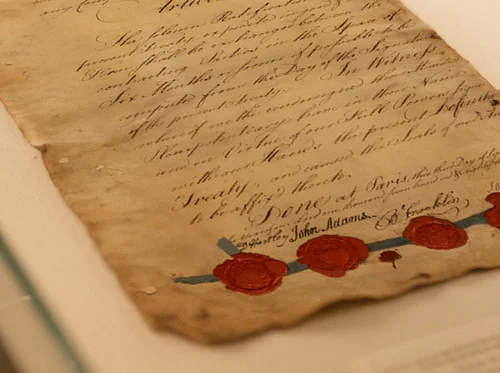 any
The solemn Ratifications
present Treaty expedited in good &
Form shall be exchanged between the
contracting Parties in the Space of
Six Months or sooner if possible to be
computed from the Day of the Signature
of the present Treaty. In Witness
whereof we the undersigned their
Plenipotentiary have in their Name
and in Virtue of our Full Powers
with our Hands the present Definitive
Treaty, and caused the Seals of our
to be affixed thereto.
Done at Paris, this third Day of
in the Year of our Lord one thousand seven hundred &
Hartley John Adams. B Franklin